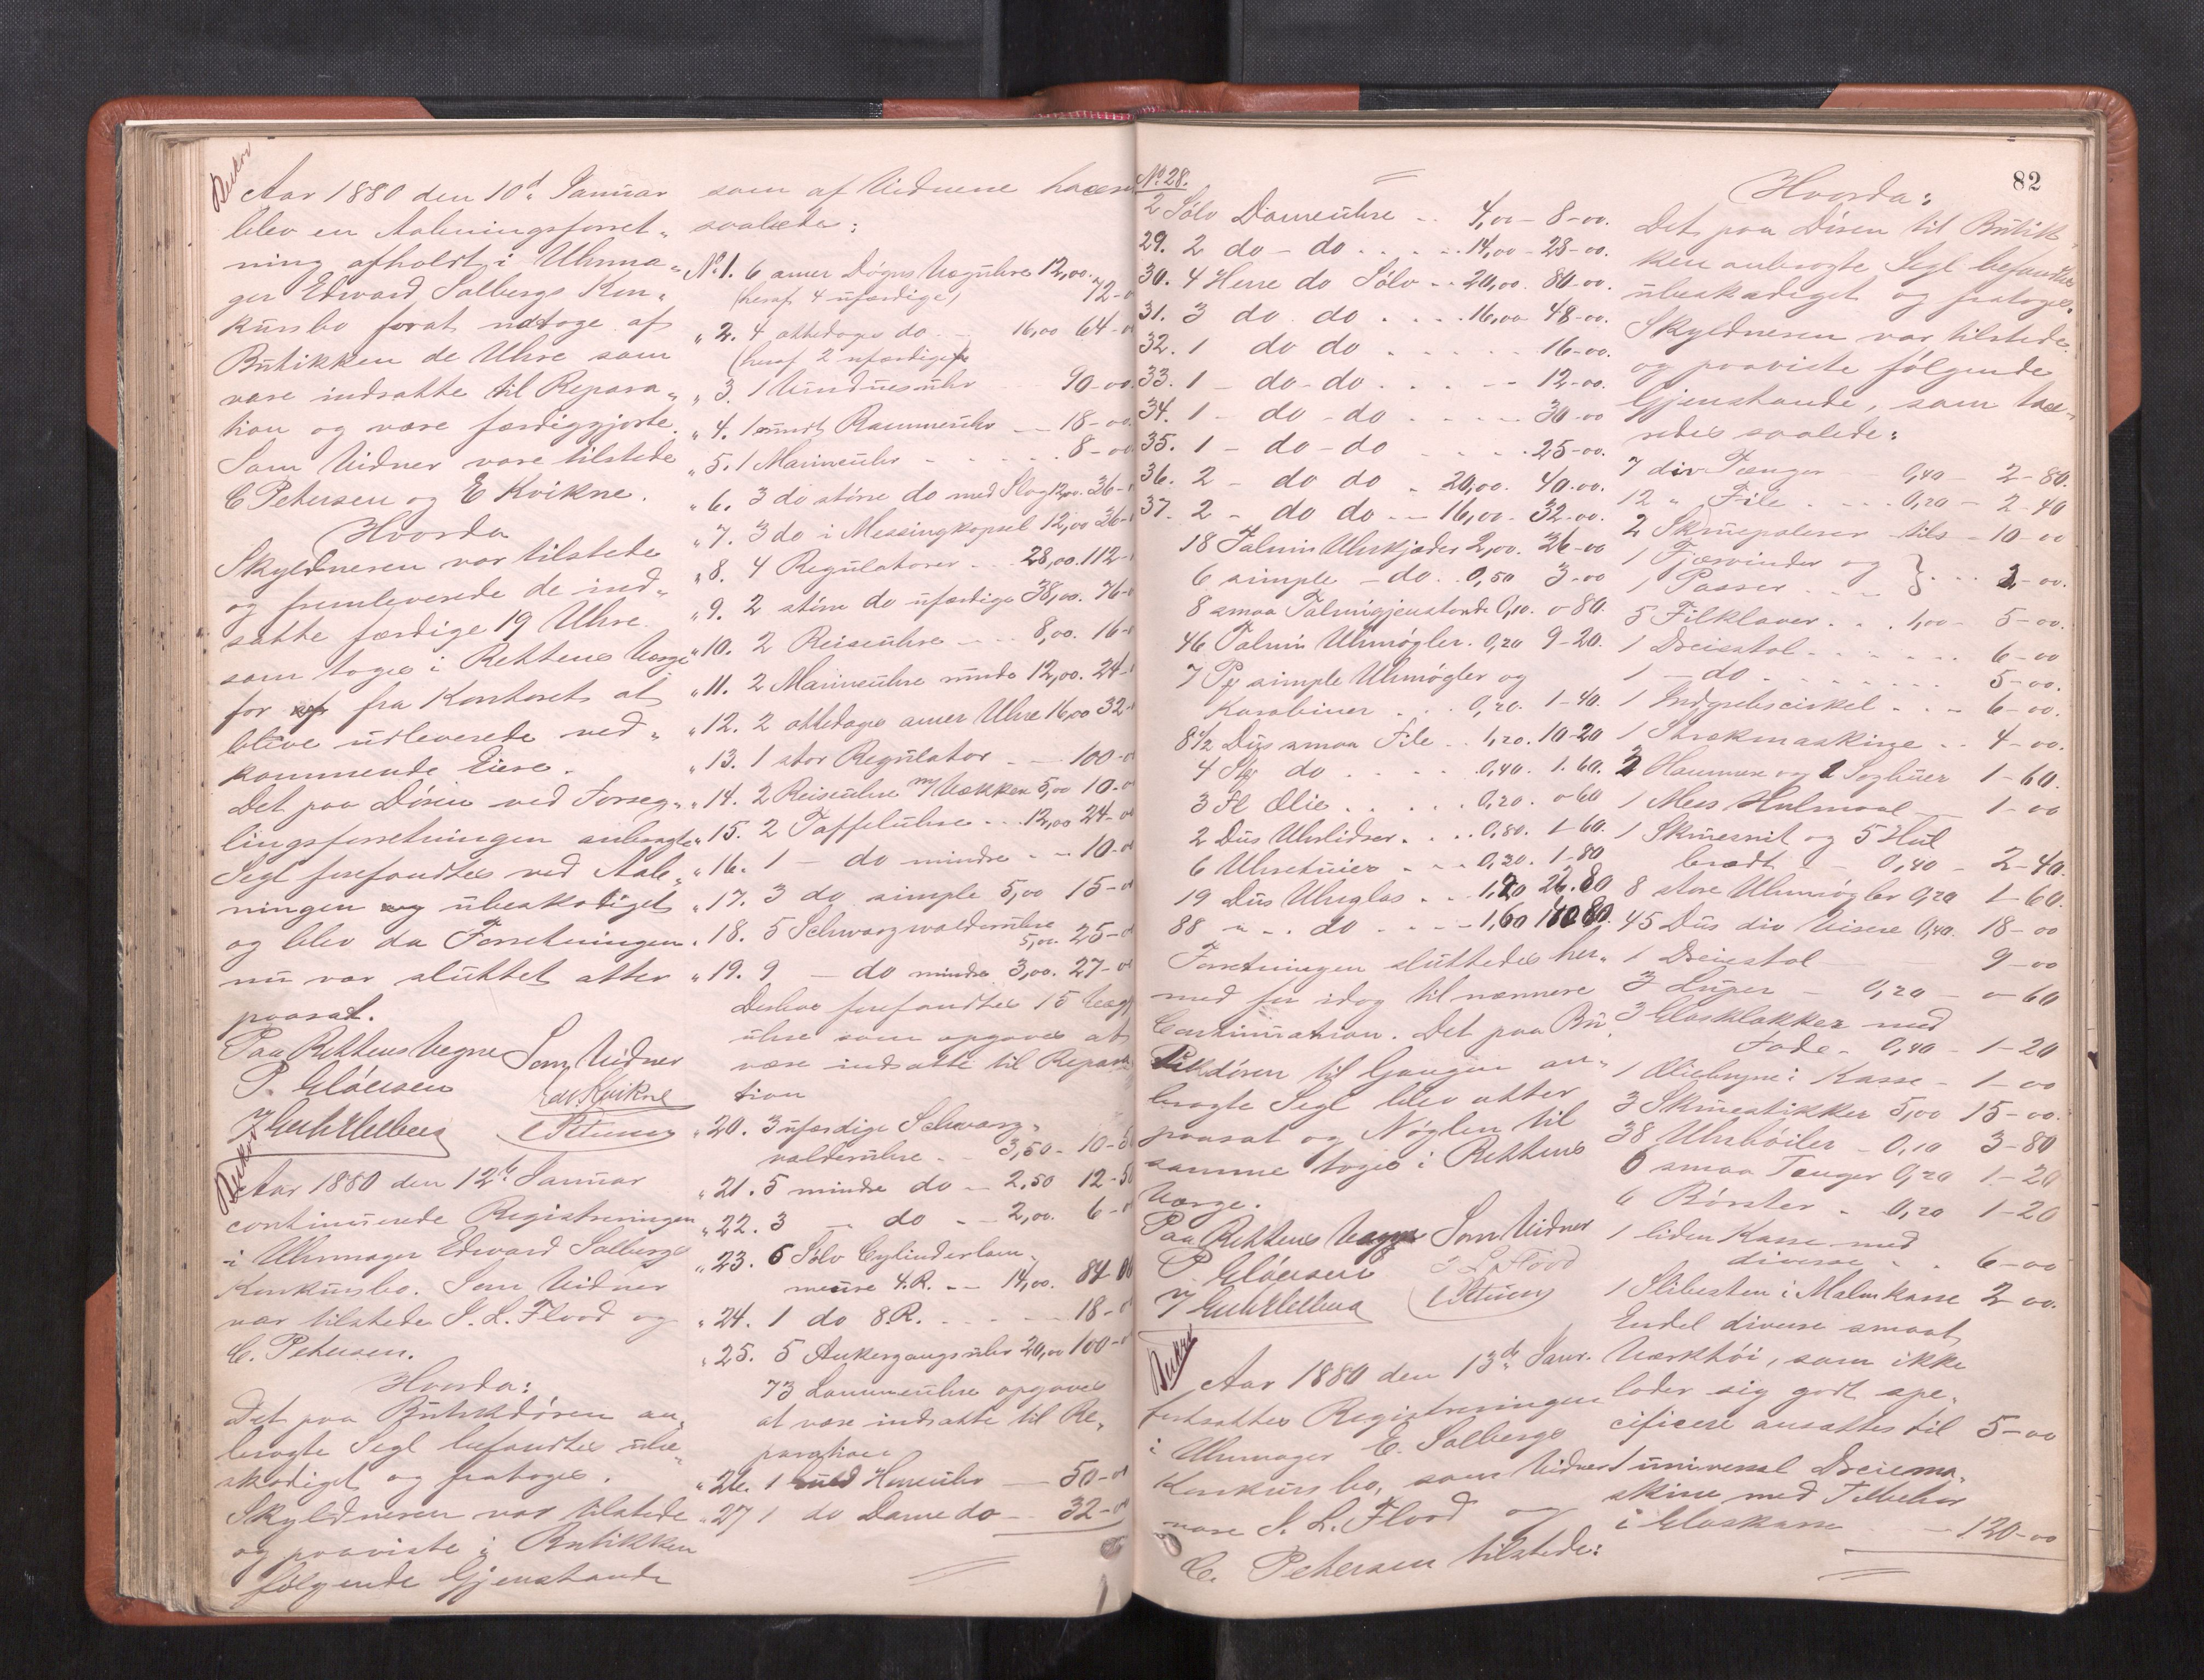 Aar 1880 den 10d Januar
blev en Aabningsforret„
ning afholdt i Uhrma„
ger Edward Solbergs Kon„
kursbo forat udtage af
Butikken de Uhre som
vare indsatte til Repara„
tion og være færdiggjorte.
Som Vidner vare tilstede
C Petersen og E Kvikne.
Hvorda
Skyldneren var tilstede
og fremleverede de ind„
satte færdige 19 Uhre.
som toges i Rettens Værge
for fra Kontoret at
blive udleverede ved„
kommende Eiere.
Det paa Døren ved Forseg„
lingsforretningen anbragte
Segl forefandtes ved Aab„
ningen ubeskadiget
og blev da Forretningen
nu var sluttet atter
paasat.
Paa Rettens Vegne Som Vidner
P. Gløersen Edv. Kvikne
CPetersen
Aar 1880 den 12te Januar
continuerede Registreringen
i Uhrmager Edward Solbergs
Konkursbo. Som Vidner
var tilstede I. L. Flood og
C. Petersen.
Hvorda:
Det paa Butikdøren an„
bragte Segl befandtes ube„
skadiget og fratoges.
Skyldneren var tilstede
og paaviste i Butikken
følgende Gjenstande
som af Vidnene taxeres
saaledes:
No 1. 6 amer Døgns Væguhre 12,00.
(heraf 4 ufærdige) 72-00
„ 2. 4 ottedags do 16,00 64-00
(heraf 2 ufærdige)
„ 3. 1 Vinduesuhr 90-00
„ 4. 1 rundt Rammeuhr — 18-00
„ 5. 1 Marineuhr - - - - 8-00
„ 6. 3 do større do med Slag 12,00. 36-
„ 7. 3 do i Messingkapsel 12,00 36-
„ 8. 4 Regulatorer - 28,00. 112-
„ 9. 2 større do ufærdige 38,00. 76-
„ 10. 2 Reiseuhre - - 8,00. 16-
„ 11. 2 Marineuhre runde 12,00. 24-
„ 12. 2 ottedags amer Uhre 16,00 32-
„ 13. 1 stor Regulator - - 100-
„ 14. 2 Reiseuhre m/ Vækker 5,00 10-
„ 15. 2 Taffeluhre - - 12,00 24-00
„ 16. 1 — do mindre - - 10-
„ 17. 3 do simple 5,00 15-
„ 18. 5 Schwarzwalderuhre
5,00. 25-
„ 19. 9 — do mindre 3,00. 27-
Desuden forefandtes 15 Væg
uhre som opgaves at
være indsatte til Repara
tion
„ 20. 3 ufærdige Schwarz„
valderuhre - - 3,50 - 10-5
„ 21. 5 mindre do - 2,50 12-50
„ 22. 3 — do - - 2,00. 6-
„ 23. 6 Sølv Cylinderlom„
meure 4.R. - - 14,00. 84-00
„ 24. 1 do 8.R. - - - - 18-
„ 25. 5 Ankergangsuhr 20,00 100-
73 Lommeuhre opgaves
at være indsatte til Re„
paration
„ 26. 1 Herreuhr — 50-
„ 27 1 do Dame do - - 32-
82
No 28.
2 Sølv Dameuhre - - 4,00 - 8-00.
29. 2 do - do - - - - 14,00 - 28-00.
30. 4 Herre do Sølv - - 20,00. 80-00.
31. 3 do do - - - 16,00 48-00.
32. 1 do do - - - - 16-00.
33. 1 - do - do - - - - 12-00.
34. 1 - do - do - - - - 30-00
35. 1 - do - do - - - - 25-00.
36. 2 - do do - 20,00. 40-00.
37. 2 - do do - - 16,00. 32-00.
18 Talmin Uhrkjæder 2,00. 36-00
6 simple - do. 0,50 3-00
8 smaa Talmigjenstande 0,10. 0 80.
46 Talmin Uhrnøgler. 0,20 9-20.
7 Px simple Uhrnøgler og
Karabiner - - - 0,20. 1-40.
8½ Dus smaa File - - 1,20. 10-20
4 Stk do - - - - 0,40. 1.60.
3 Fl Olie - - - - 0,20. 0 60
2 Dus Uhrlidser. - - - 0,80. 1-60.
6 Uhretuier - - - 0,30. 1-80
19 Dus Uhrglas - - 26.80
88 „ - do - - - - 1,60 140 80.
Forretningen sluttedes her„
med for idag til nærmere
Continuation. Det paa Bu
tikdøren til Gangen an„
bragte Segl blev atter
paasat og Nøglen til
samme toges i Rettens
Værge.
Paa Rettens Vegne Som Vidner
P. Gløersen I L Flood
CPetersen
Aar 1880 den 13de Janr.
fortsattes Registreringen
i Uhrmager E. Solbergs
Konkursbo, som Vidner
vare I. L. Flood og
C. Petersen tilstede:
Hvorda:
Det paa Døren til Butik„
ken anbragte Segl befandtes
ubeskadiget og fratoges.
Skyldneren var tilstede
og paaviste følgende
Gjenstande, som tax„
redes saalede:
7 div Tænger 0,40 - 2-80.
12 „ File - - - 0,20 - 2-40
2 Skruepolerer tils - 10-00
1 Fjærvinder og
1 Passer - - - } - - - 2-00.
5 Filklaver - - - 1,00 - 5-00.
1 Dreiestol - - - - - - 6-00
1 — do - - - - - - 5-00.
1 Indgrebscirkel - - - 6-00.
1 Strækmaskine - - 4-00.
2 Hammere og 2 Sagbuer 1-60.
1 Mess Hulmaal — 1-00
1 Skruesnit og 5 Hul
brædt — 0,40 - 2-40.
8 store Uhrnøgler 0,20 1-60.
45 Dus div Visere 0,40. 18-00
1 Dreiestol 9-00
3 Luper — 0,20 - 0-60
3 Glasklokker med
Fode - 0,40 - 1-20
1 Oliebryne i Kasse - 1-00
3 Skruestikker 5,00 15-00.
38 Uhrbøiler - 0,10 3-80
6 smaa Tenger 0,20 1-20
6 Børster - 0,20 1-20
1 liden Kasse med
diverse - - 6-00
1 Slibesten i Malmkasse 2 00.
Endel diverse smaat
Værktøi, som ikke
lader sig godt spe„
cificere ansattes til 5-00
1 universal Dreiema„
skine med Tilbehør
i Glaskasse - 120-00